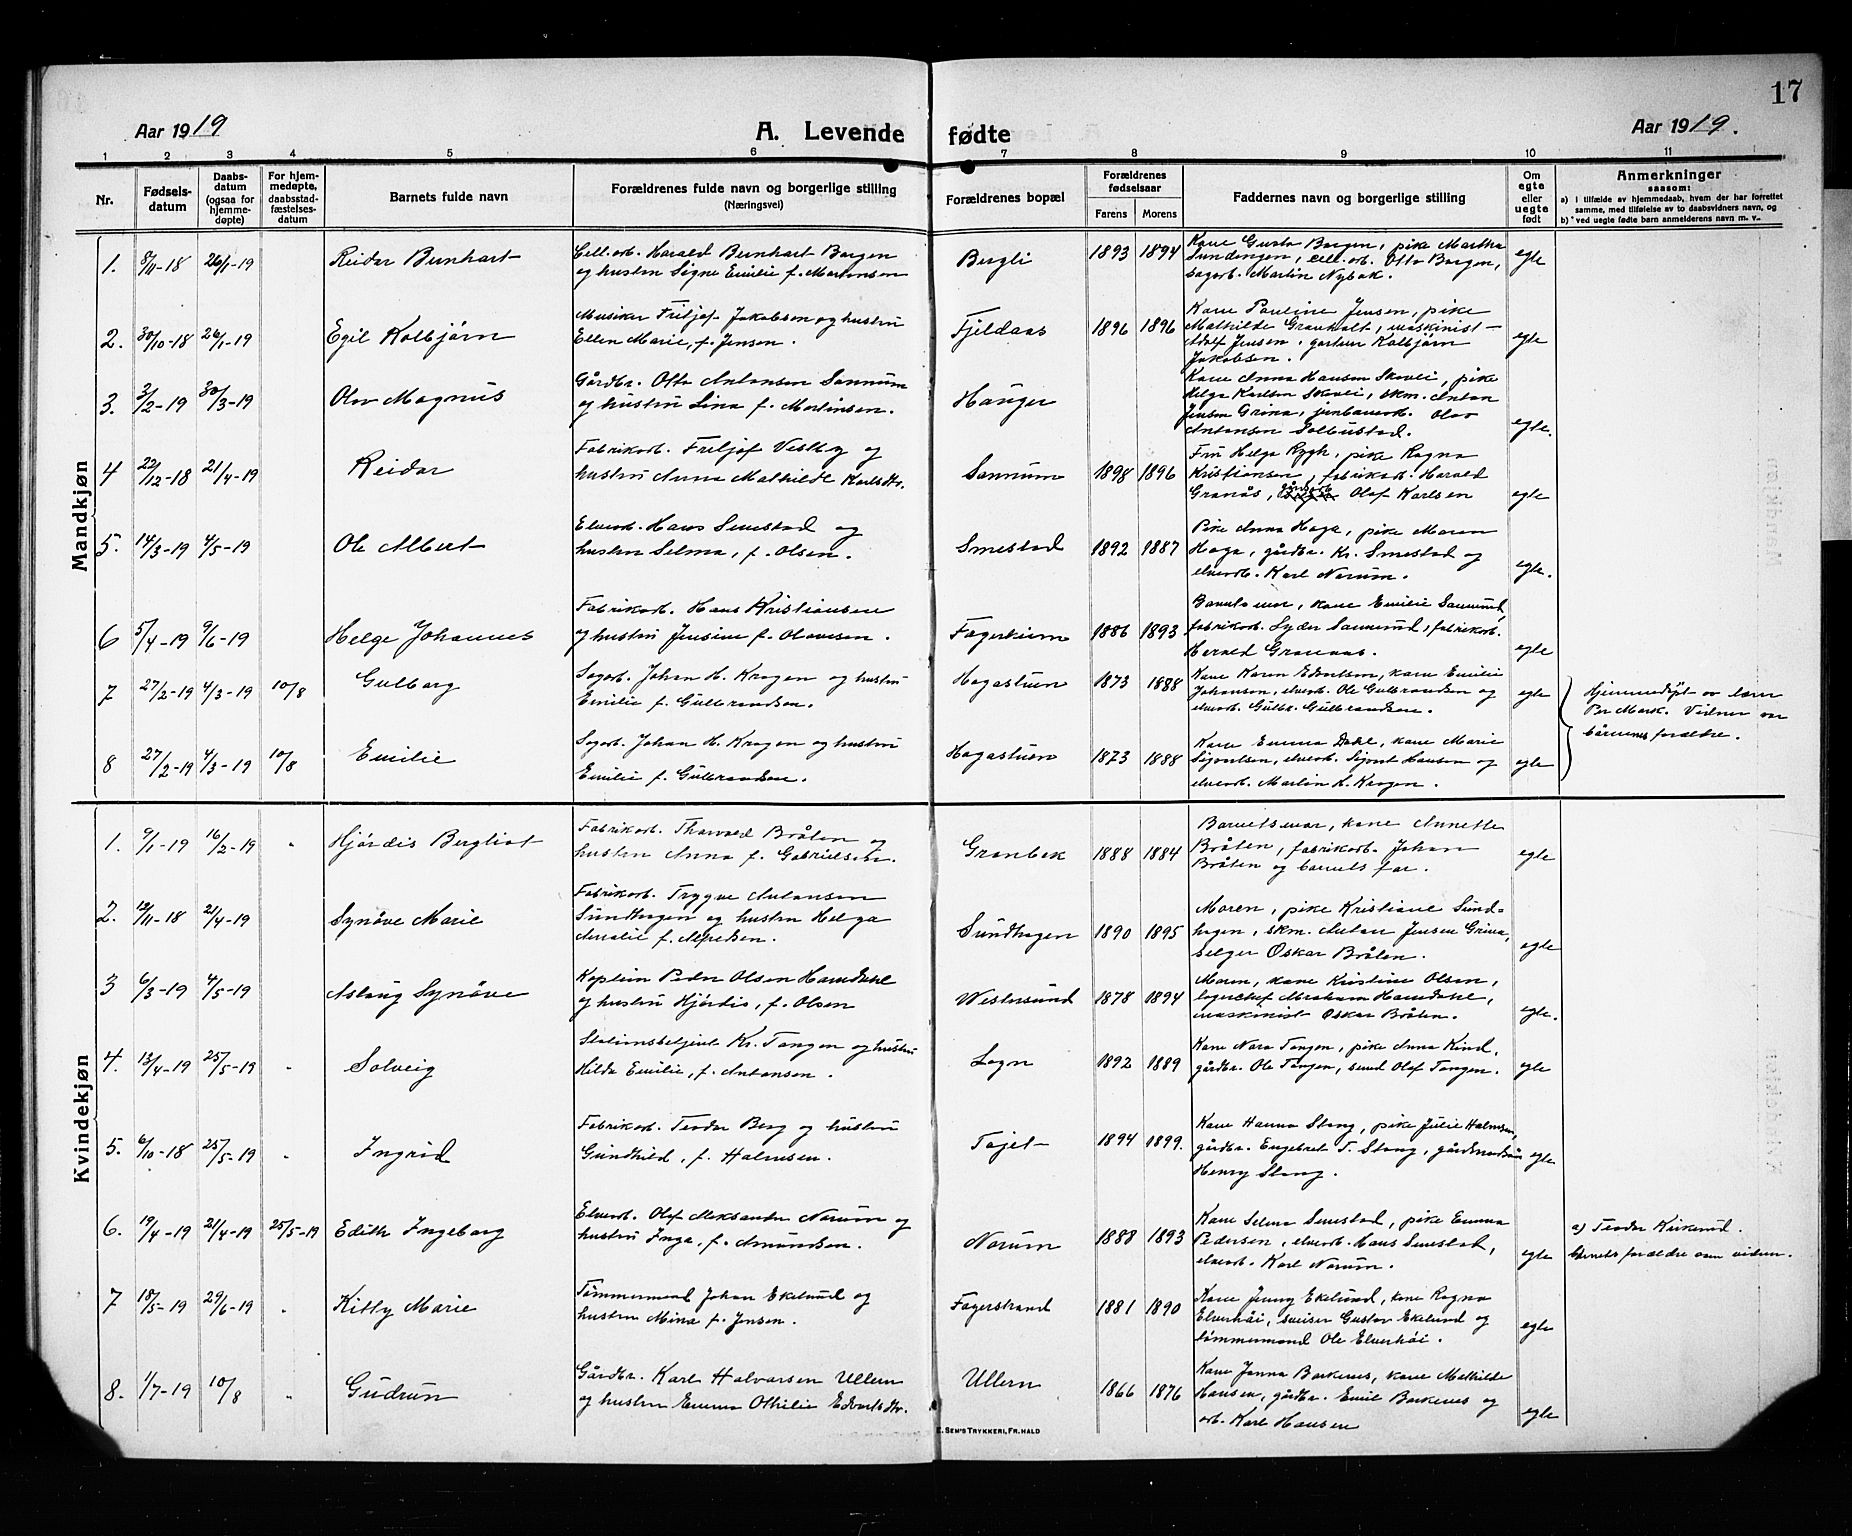 17
Aar 1919
A. Levende fødte
Aar 1919.
1 2 3 4 5 6 7 8 9 10 11
Nr.
Fødsels-
datum
Daabs-
datum
(ogsaa for
hjemme-
døpte)
For hjem-
medøpte,
daabsstad-
fæstelses-
datum
Barnets fulde navn
Forældrenes fulde navn og borgerlige stilling
(Næringsvei)
Forældrenes bopæl
Forældrenes
fødselsaar
Farens Morens
Faddernes navn og borgerlige stilling
Om
egte
eller
uegte
født
Anmerkninger
saasom:
a) I tilfælde av hjemmedaab, hvem der har forrettet
samme, med tilføielse av to daabsvidners navn, og
b) ved uegte fødte barn anmelderens navn m. v.
Mandkjøn
1. 8/11-18 26/1-19 Reidar Bernhart
Cell.arb. Harald Bernhart Borgen
og hustru Signe Emilie f. Mortensen
Bergli 1893 1894
Kone Gusta Borgen, pike Martha
Sundengen, cell.arb. Otto Borgen,
sagarb. Martin Nybak.
egte
2. 30/10-18 26/1-19 Egil Kolbjørn
Musiker Fritjof Jakobsen og hustru
Ellen Marie, f. Jensen.
Fjeldaas 1896 1896
Kone Pauline Jensen, pike
Mathilde Granholt, maskinist
Adolf Jensen, gartner Kolbjørn
Jakobsen.
egte
3. 2/2-19 30/3-19 Olav Magnus
Gårdbr. Otto Antonsen Sannum
og hustru Lina f. Martinsen.
Hauger
Kone Anna Hansen Skovli, pike
Helga Karlsen Skovli, skm. Anton
Jensen Grina, jernbanearb. Olav
Antonsen Solbustad.
egte.
4 22/12-18 21/4-19 Reidar
Fabrikarb. Fritjof Vestby og
hustru Anna Mathilde Karlsdtr.
Sannum 1898 1896
Fru Helga Rygh, pike Ragna
Kristiansen, fabrikarb. Harald
Granås, gårdarb. Olaf Karlsen
egte
5. 14/3-19 4/5-19 Ole Albert
Elvearb. Hans Smestad og
hustru Selma, f. Olsen.
Smestad 1892 1887
Pike Anna Haga, pike Maren
Haga, gårdbr. Kr. Smestad og
elvearb. Karl Norum.
egte.
6 5/4-19 9/6-19 Helge Johannes
Fabrikarb. Hans Kristiansen
og hustru Jensine f. Olavesen.
Fagerheim 1886 1893
Barnets mor, kone Emilie Sannerud,
fabrikarb. Syder Sannerud, fabrikarb.
Harald Granaas.
egte
7 27/2-19 4/3-19 10/8 Gulborg
Sagarb. Johan H. Krogen og hustru
Emilie f. Gulbrandsen.
Hagastuen 1873 1888
Kone Karen Edvartsen, kone Emilie
Johansen, elvearb. Ole Gulbrandsen og
elvearb. Gulbr. Gulbrandsen.
egte
Hjemmedøpt av lærer
Br. Mork. Vidner var
barnenes forældre.
8 27/2-19 4/3-19 10/8 Emilie
Sagarb. Johan H. Krogen og hustru
Emilie f. Gulbrandsen.
Hagastuen 1873 1888
Kone Emma Dahl, kone Marie
Sigvartsen, elvearb. Sigvart Hansen og
elvearb. Martin H. Krogen.
egte
Kvindekjøn
1. 9/1-19 16/2-19 " Hjørdis Bergliot
Fabrikarb. Thorvald Bråten og
hustru Anna f. Gabrielsen.
Granbek 1888 1884
Barnets mor, kone Annette
Bråten, fabrikarb. Johan
Bråten og barnets far.
egte
2. 12/11-18 21/4-19 Synøve Marie
Fabrikarb. Trygve Antonsen
Sundhagen og hustru Helga
Amalie f. Alfredsen.
Sundhagen 1890 1895
Moren, pike Kristiane Sund-
hagen, skm. Anton Jensen Grina,
selger Oskar Bråten.
egte
3 6/3-19 4/5-19 Aslaug Synøve
Kaptein Peder Olsen Hamedahl
og hustru Hjørdis, f. Olsen
Westersund 1878 1894
Moren, kone Kristine Olsen,
Abraham Hamedahl,
maskinist Oskar Bråten.
egte.
4. 13/4-19 25/5-19 " Solveig
Stationsbetjent Kr. Tangen og hustru
Hilda Emilie, f. Antonsen.
Logn 1892 1889
Kone Nora Tangen, pike Anna Kind,
gårdbr. Ole Tangen, smed Olaf Tangen.
egte
5. 6/10-18 25/5-19 " Ingrid
Fabrikarb. Teodor Berg og hustru
Gundhild, f. Halvorsen.
Tajet 1894 1899.
Kone Hanna Stang, pike Julie Halvorsen,
gårdbr. Engebret T. Stang, gårdmandssøn
Henry Stang.
egte
6. 19/4-19 21/4-19 25/5-19 Edith Ingeborg
Elvearb. Olaf Aleksander Norum og
hustru Inga, f. Amundsen.
Norum 1888 1893
Kone Selma Smestad, pike Emma
Pedersen, elvearb. Hans Smestad,
elvearb. Karl Norum.
egte
a) Teodor Kirkerud.
Barnets forældre som vidner.
7 18/5-19 29/6-19 " Kitty Marie
Tømmermand Johan Ekelund og
hustru Mina f. Jensen.
Fagerstrand 1881 1890
Kone Jenny Ekelund, kone Ragna
Elverhøi, sveiser Gustav Ekelund og
tømmermand Ole Elverhøi.
egte
8. 1/7-19 10/8 " Gudrun
Gårdbr. Karl Halvorsen Ullern
og hustru Emma Othilie Edvartsdtr.
Ullern 1866 1876
Kone Janna Barkenes, kone Mathilde
Hansen, gårdbr. Emil Barkenes og
arb. Karl Hansen
egte
E. SEM'S TRYKKERI, FR.HALD